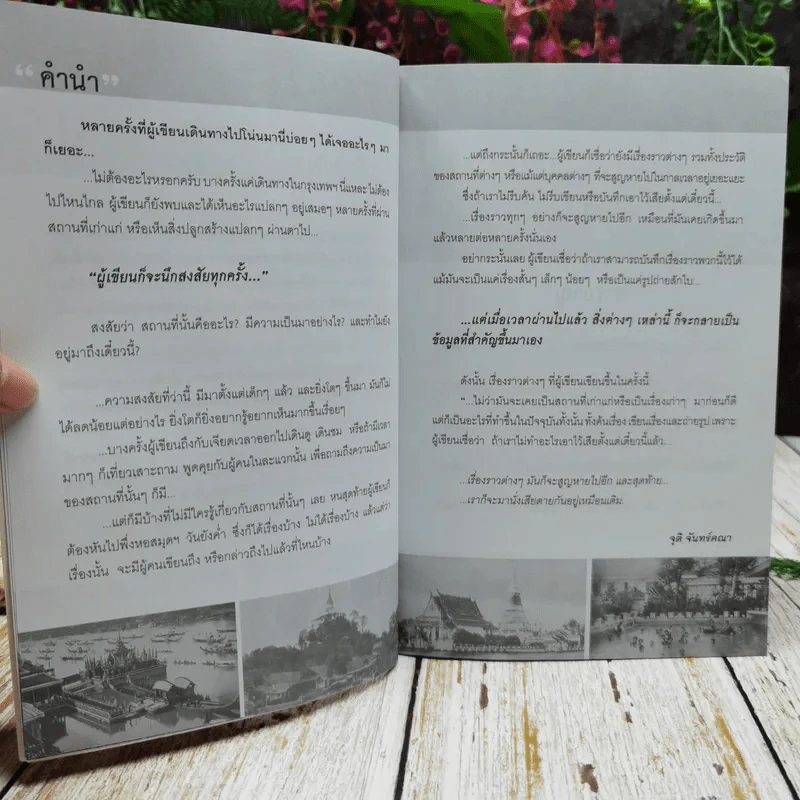 “คำนำ”
หลายครั้งที่ผู้เขียนเดินทางไปโน่นมานี่บ่อยๆ ได้เจออะไรๆ มา
ก็เยอะ...
...ไม่ต้องอะไรหรอกครับ บางครั้งแค่เดินทางในกรุงเทพฯ นี่แหละ ไม่ต้อง
ไปไหนไกล ผู้เขียนก็ยังพบและได้เห็นอะไรแปลกๆ อยู่เสมอๆ หลายครั้งที่ผ่าน
สถานที่เก่าแก่ หรือเห็นสิ่งปลูกสร้างแปลกๆ ผ่านตาไป...
“ผู้เขียนก็จะนึกสงสัยทุกครั้ง...”
สงสัยว่า สถานที่นั้นคืออะไร? มีความเป็นมาอย่างไร? และทำไมยัง
อยู่มาถึงเดี๋ยวนี้?
...ความสงสัยที่ว่านี้ มีมาตั้งแต่เด็กๆ แล้ว และยิ่งโตๆ ขึ้นมา มันก็ไม่
ได้ลดน้อยแต่อย่างไร ยิ่งโตก็ยิ่งอยากรู้อยากเห็นมากขึ้นเรื่อยๆ
...บางครั้งผู้เขียนถึงกับเจียดเวลาออกไปเดินดู เดินชม หรือถ้ามีเวลา
มากๆ ก็เที่ยวเสาะถาม พูดคุยกับผู้คนในละแวกนั้น เพื่อถามถึงความเป็นมา
ของสถานที่นั้นๆ ก็มี...
...แต่ก็มีบ้างที่ไม่มีใครรู้เกี่ยวกับสถานที่นั้นๆ เลย หนสุดท้ายผู้เขียนก็
ต้องหันไปพึ่งหอสมุดฯ วันยังค่ำ ซึ่งก็ได้เรื่องบ้าง ไม่ได้เรื่องบ้าง แล้วแต่ว่า
เรื่องนั้น จะมีผู้คนเขียนถึง หรือกล่าวถึงไปแล้วที่ไหนบ้าง
...แต่ถึงกระนั้นก็เถอะ...ผู้เขียนก็เชื่อว่ายังมีเรื่องราวต่างๆ รวมทั้งประวัติ
ของสถานที่ต่างๆ หรือแม้แต่บุคคลต่างๆ ที่จะสูญหายไปในกาลเวลาอยู่เยอะแยะ
ซึ่งถ้าเราไม่รีบค้น ไม่รีบเขียนหรือบันทึกเอาไว้เสียตั้งแต่เดี๋ยวนี้...
...เรื่องราวทุกๆ อย่างก็จะสูญหายไปอีก เหมือนที่มันเคยเกิดขึ้นมา
แล้วหลายต่อหลายครั้งนั่นเอง
อย่ากระนั้นเลย ผู้เขียนเชื่อว่าถ้าเราสามารถบันทึกเรื่องราวพวกนี้ไว้ได้
แม้มันจะเป็นแค่เรื่องสั้นๆ เล็กๆ น้อยๆ หรือเป็นแค่รูปถ่ายสักใบ...
...แต่เมื่อเวลาผ่านไปแล้ว สิ่งต่างๆ เหล่านี้ ก็จะกลายเป็น
ข้อมูลที่สำคัญขึ้นมาเอง
ดังนั้น เรื่องราวต่างๆ ที่ผู้เขียนเขียนขึ้นในครั้งนี้
“...ไม่ว่ามันจะเคยเป็นสถานที่เก่าแก่หรือเป็นเรื่องเก่าๆ มาก่อนก็ดี
แต่ก็เป็นอะไรที่ทำขึ้นในปัจจุบันทั้งนั้น ทั้งค้นเรื่อง เขียนเรื่องและถ่ายรูป เพราะ
ผู้เขียนเชื่อว่า ถ้าเราไม่ทำอะไรเอาไว้เสียตั้งแต่เดี๋ยวนี้แล้ว...
...เรื่องราวต่างๆ มันก็จะสูญหายไปอีก และสุดท้าย...
...เราก็จะมานั่งเสียดายกันอยู่เหมือนเดิม.
จุติ จันทร์คณา